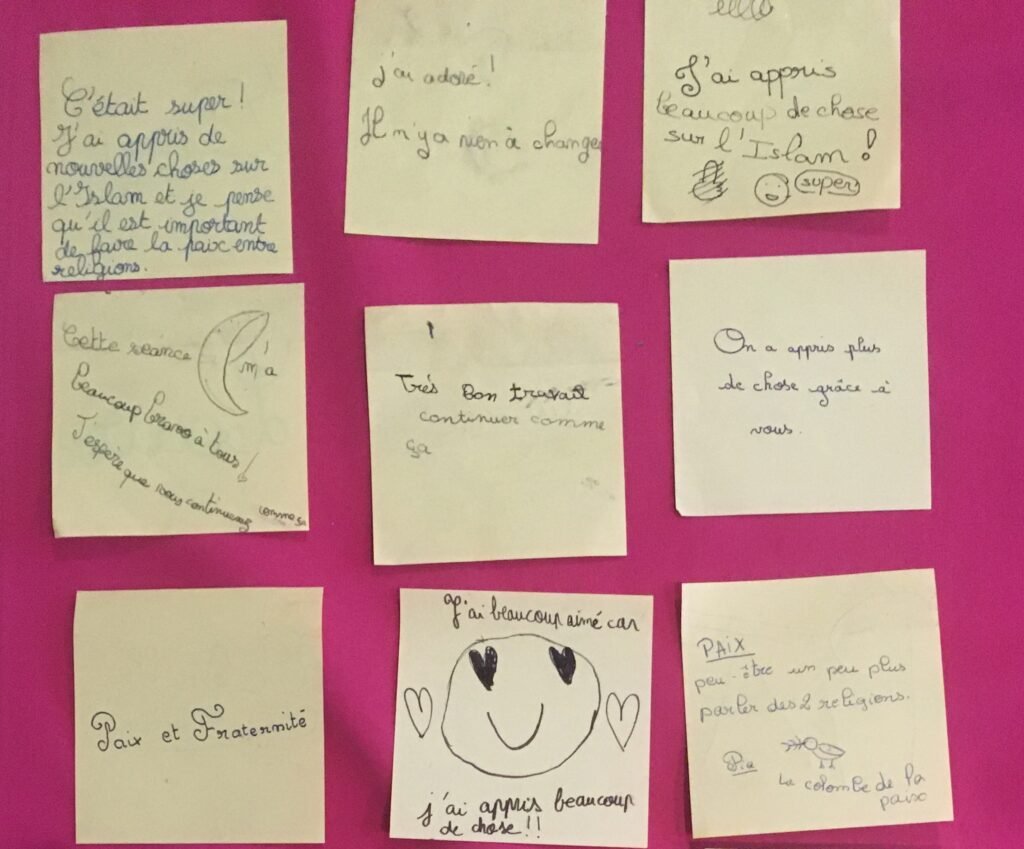 C'était super !
J'ai appris de
nouvelles choses sur
l'Islam et je pense
qu'il est important
de faire la paix entre
religions.
j'ai adoré !
Il n'y a rien à changer
J'ai appris
beaucoup de chose
sur l'Islam !
super
Cette séance m'a
beaucoup bravo à tous !
J'espère que vous continuerez comme sa
Très Bon travail
continuer comme
ça
On a appris plus
de chose grâce à
vous.
Paix et Fraternité
J'ai beaucoup aimé car
j'ai appris beaucoup
de chose !!
PAIX
peu-être un peu plus
parler des 2 religions.
Pia
La colombe de la
paix